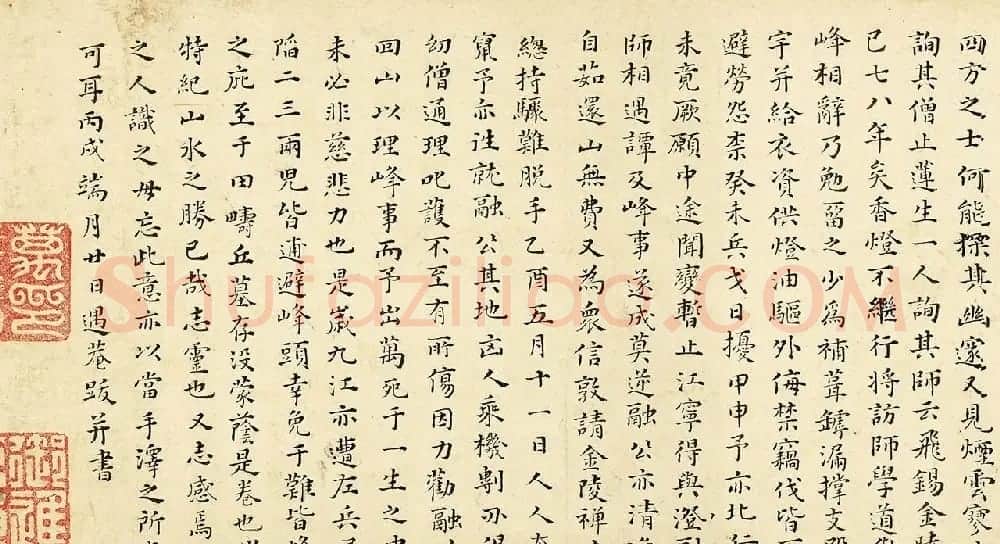 四方之士何能探其幽邃又見煙雲寥
詢其僧止蓮生一人詢其師云飛錫金陵
已七八年矣香燈不繼行將訪師學道
峰相辭乃勉留之少為補葺鏬漏撐支
字并給衣資供燈油驅外侮禁竊伐皆
避勞怨柰癸未兵戈日擾甲申予亦北行
未竟厥願中途聞變暫止江寧得與澄
師相遇譚及峰事遂成莫逆融公亦清
自茹還山無費又為衆信敦請金陵禪
總持驟難脫手乙酉五月十一日人人
竄予亦往就融公其地凶人乘機剽刃
幼僧通理叱護不至有所傷因力勸融
回山以理峰事而予出萬死于一生之
未必非慈悲力也是歲九江亦遭左兵
陷二三兩兒皆逋避峰頭幸免于難皆
之庇至于田疇丘墓存沒蒙蔭是卷也
特紀山水之勝已哉志靈也又志感焉
之人識之毋忘此意亦以當手澤之所
可耳丙戌端月廿日遇菴跋并書
Shufaziliao.COM